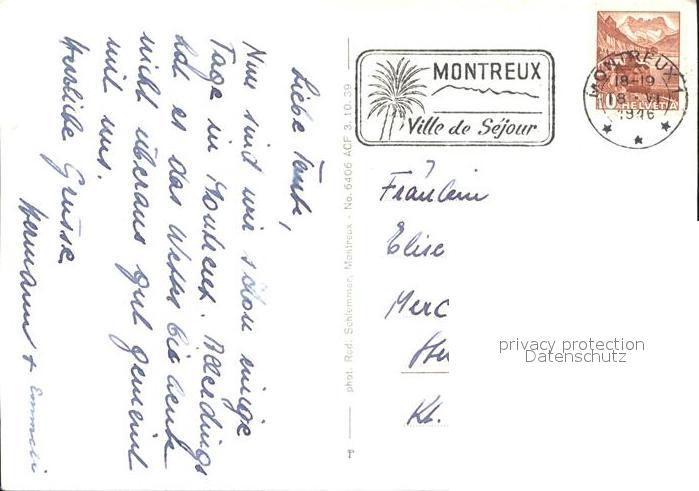 Liebe Tante,
Nun sind wir schon einige
Tage in Montreux. Allerdings
hat es das Wetter bis heute
nicht überaus gut gemeint
mit uns.
Herzliche Grüsse
Hermann + Emmeli
phot. Rud. Schlemmer, Montreux - No. 6406 ACF 3. 10. 39
MONTREUX
Ville de Séjour
MONTREUX 1
18-19
8. VI
1946
10 HELVETIA
Fräulein
Elise
Merc
Kt.
privacy protection
Datenschutz